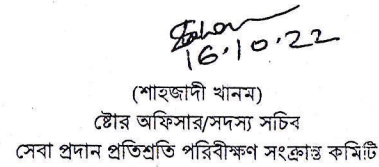 16.10.22
(শাহজাদী খানম)
ষ্টোর অফিসার/সদস্য সচিব
সেবা প্রদান প্রতিশ্রুতি পরিবীক্ষণ সংক্রান্ত কমিটি